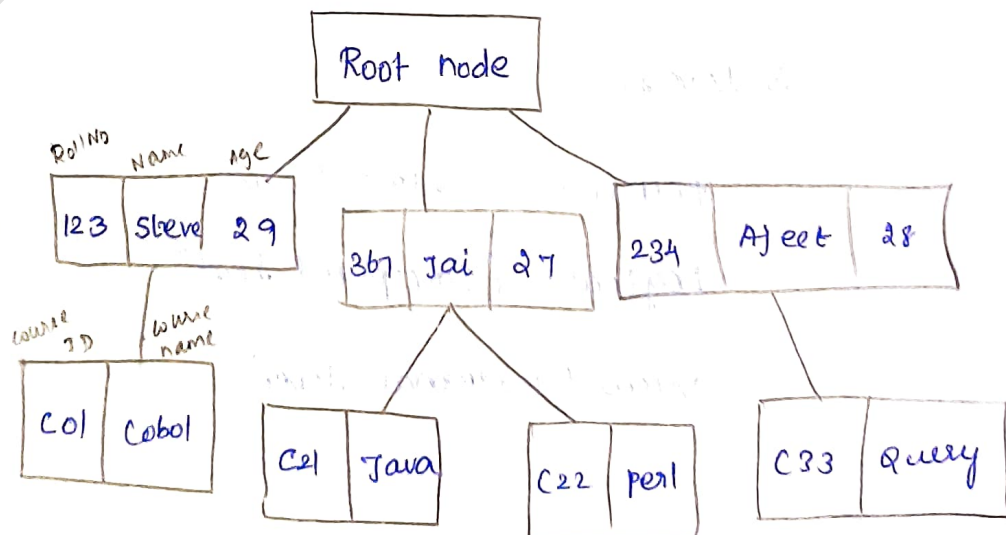 Root node
Roll No Name Age
123 Steve 29
367 Jai 27
234 Ajeet 28
course ID course name
C01 Cobol
C21 Java
C22 perl
C33 Query